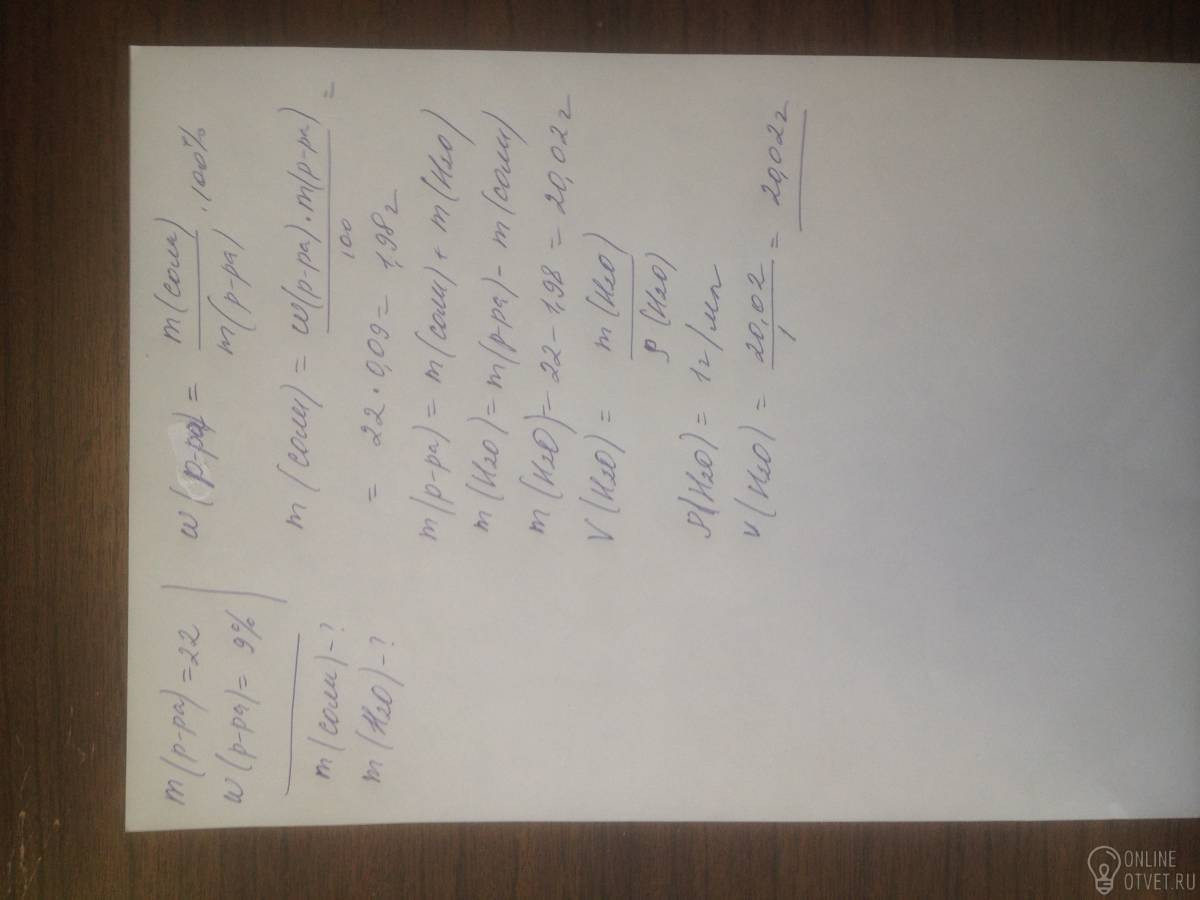 m(р-ра) = 22
w(р-ра) = 9%
m(соли) - ?
m(H2O) - ?
w(р-ра) = m(соли) / m(р-ра) · 100%
m(соли) = w(р-ра) · m(р-ра) / 100 =
= 22 · 0,09 = 1,98 г
m(р-ра) = m(соли) + m(H2O)
m(H2O) = m(р-ра) - m(соли)
m(H2O) = 22 - 1,98 = 20,02 г
V(H2O) = m(H2O) / ρ(H2O)
ρ(H2O) = 1 г/мл
V(H2O) = 20,02 / 1 = 20,02 г
ONLINE
OTVET.RU